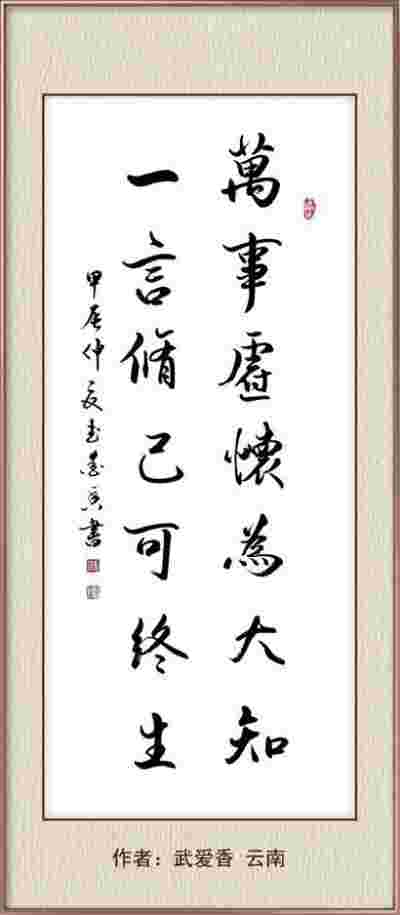 萬事虛懷為大知
一言脩己可終生
甲辰仲夏武愛香書
作者：武爱香 云南